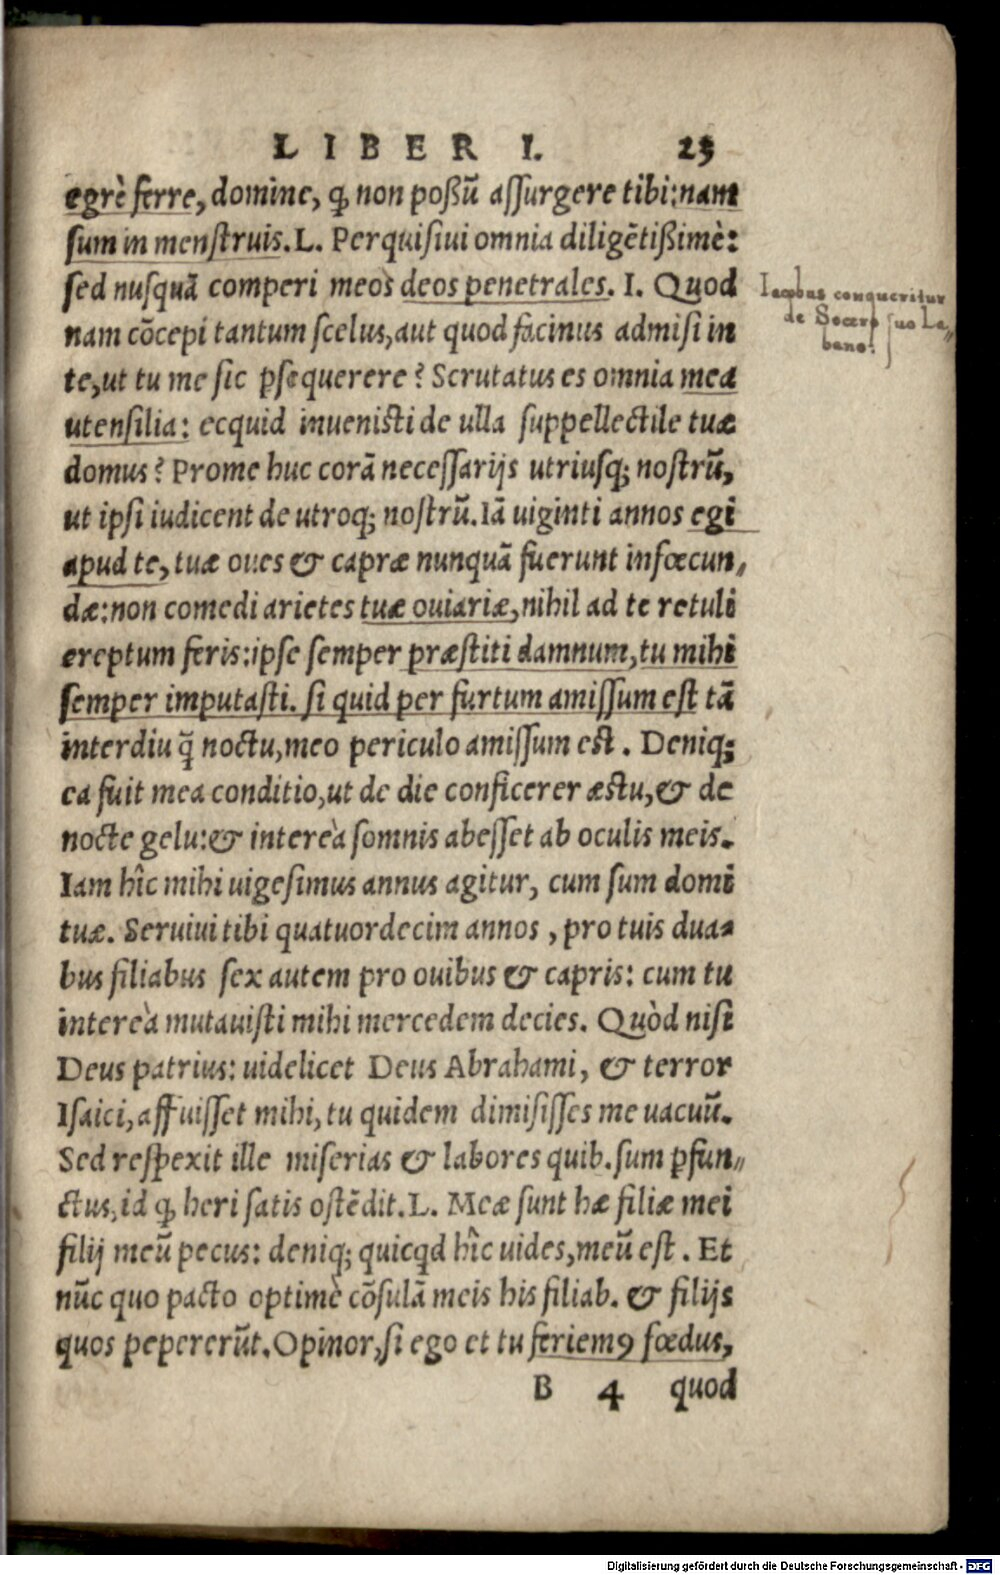 LIBER I. 23
egrè ferre, domine, ꝙ non poßũ aſſurgere tibi: nam
ſum in menſtruis. L. Perquiſiui omnia diligẽtißimè:
ſed nuſquã comperi meos deos penetrales. I. Quod
nam cõcepi tantum ſcelus, aut quod facinus admiſi in
te, ut tu me ſic ꝑſequerere? Scrutatus es omnia mea
utenſilia: ecquid inueniſti de ulla ſuppellectile tuæ
domus? Prome huc corã neceſſarijs utriuſq; noſtrũ,
ut ipſi iudicent de utroq; noſtrũ. Iã uiginti annos egi
apud te, tuæ oues & capræ nunquã fuerunt infœcun⸗
dæ: non comedi arietes tuæ ouiariæ, nihil ad te retuli
ereptum feris: ipſe ſemper præſtiti damnum, tu mihi
ſemper imputaſti. ſi quid per furtum amiſſum eſt tã
interdiu q̃ noctu, meo periculo amiſſum eſt. Deniq;
ea fuit mea conditio, ut de die conficerer æſtu, & de
nocte gelu: & intereà ſomnis abeſſet ab oculis meis.
Iam hîc mihi uigeſimus annus agitur, cum ſum domi
tuæ. Seruiui tibi quatuordecim annos, pro tuis dua⸗
bus filiabus ſex autem pro ouibus & capris: cum tu
intereà mutauiſti mihi mercedem decies. Quòd niſi
Deus patrius: uidelicet Deus Abrahami, & terror
Iſaici, affuiſſet mihi, tu quidem dimiſiſſes me uacuũ.
Sed reſpexit ille miſerias & labores quib. ſum ꝑfun⸗
ctus, id ꝙ heri ſatis oſtẽdit. L. Meæ ſunt hæ filiæ mei
filij meũ pecus: deniq; quicꝗd hîc uides, meũ eſt. Et
nũc quo pacto optimè cõſulã meis his filiab. & filijs
quos pepererũt. Opinor, ſi ego et tu feriemꝰ fœdus,
B 4 quod
Iacobus conqueritur
de Socero ſuo La⸗
bano.
Digitalisierung gefördert durch die Deutsche Forschungsgemeinschaft - DFG